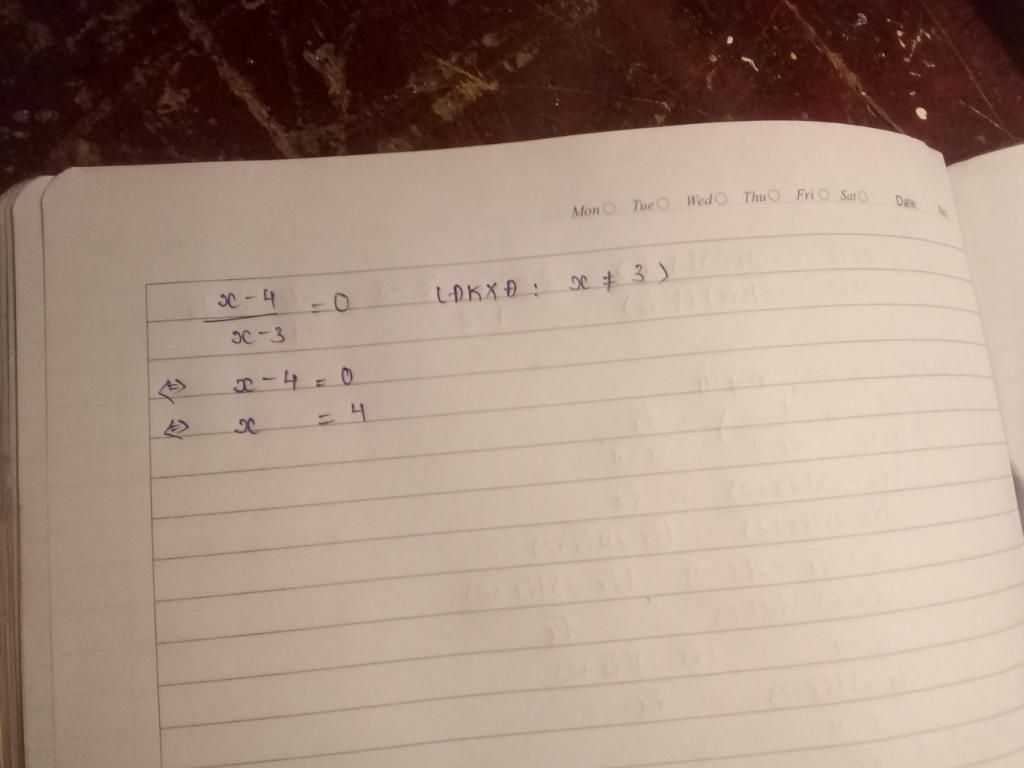 Mon Tue Wed Thu Fri Sat Date: No:
x - 4 / x - 3 = 0 (ĐKXĐ : x ≠ 3)
⇔ x - 4 = 0
⇔ x = 4